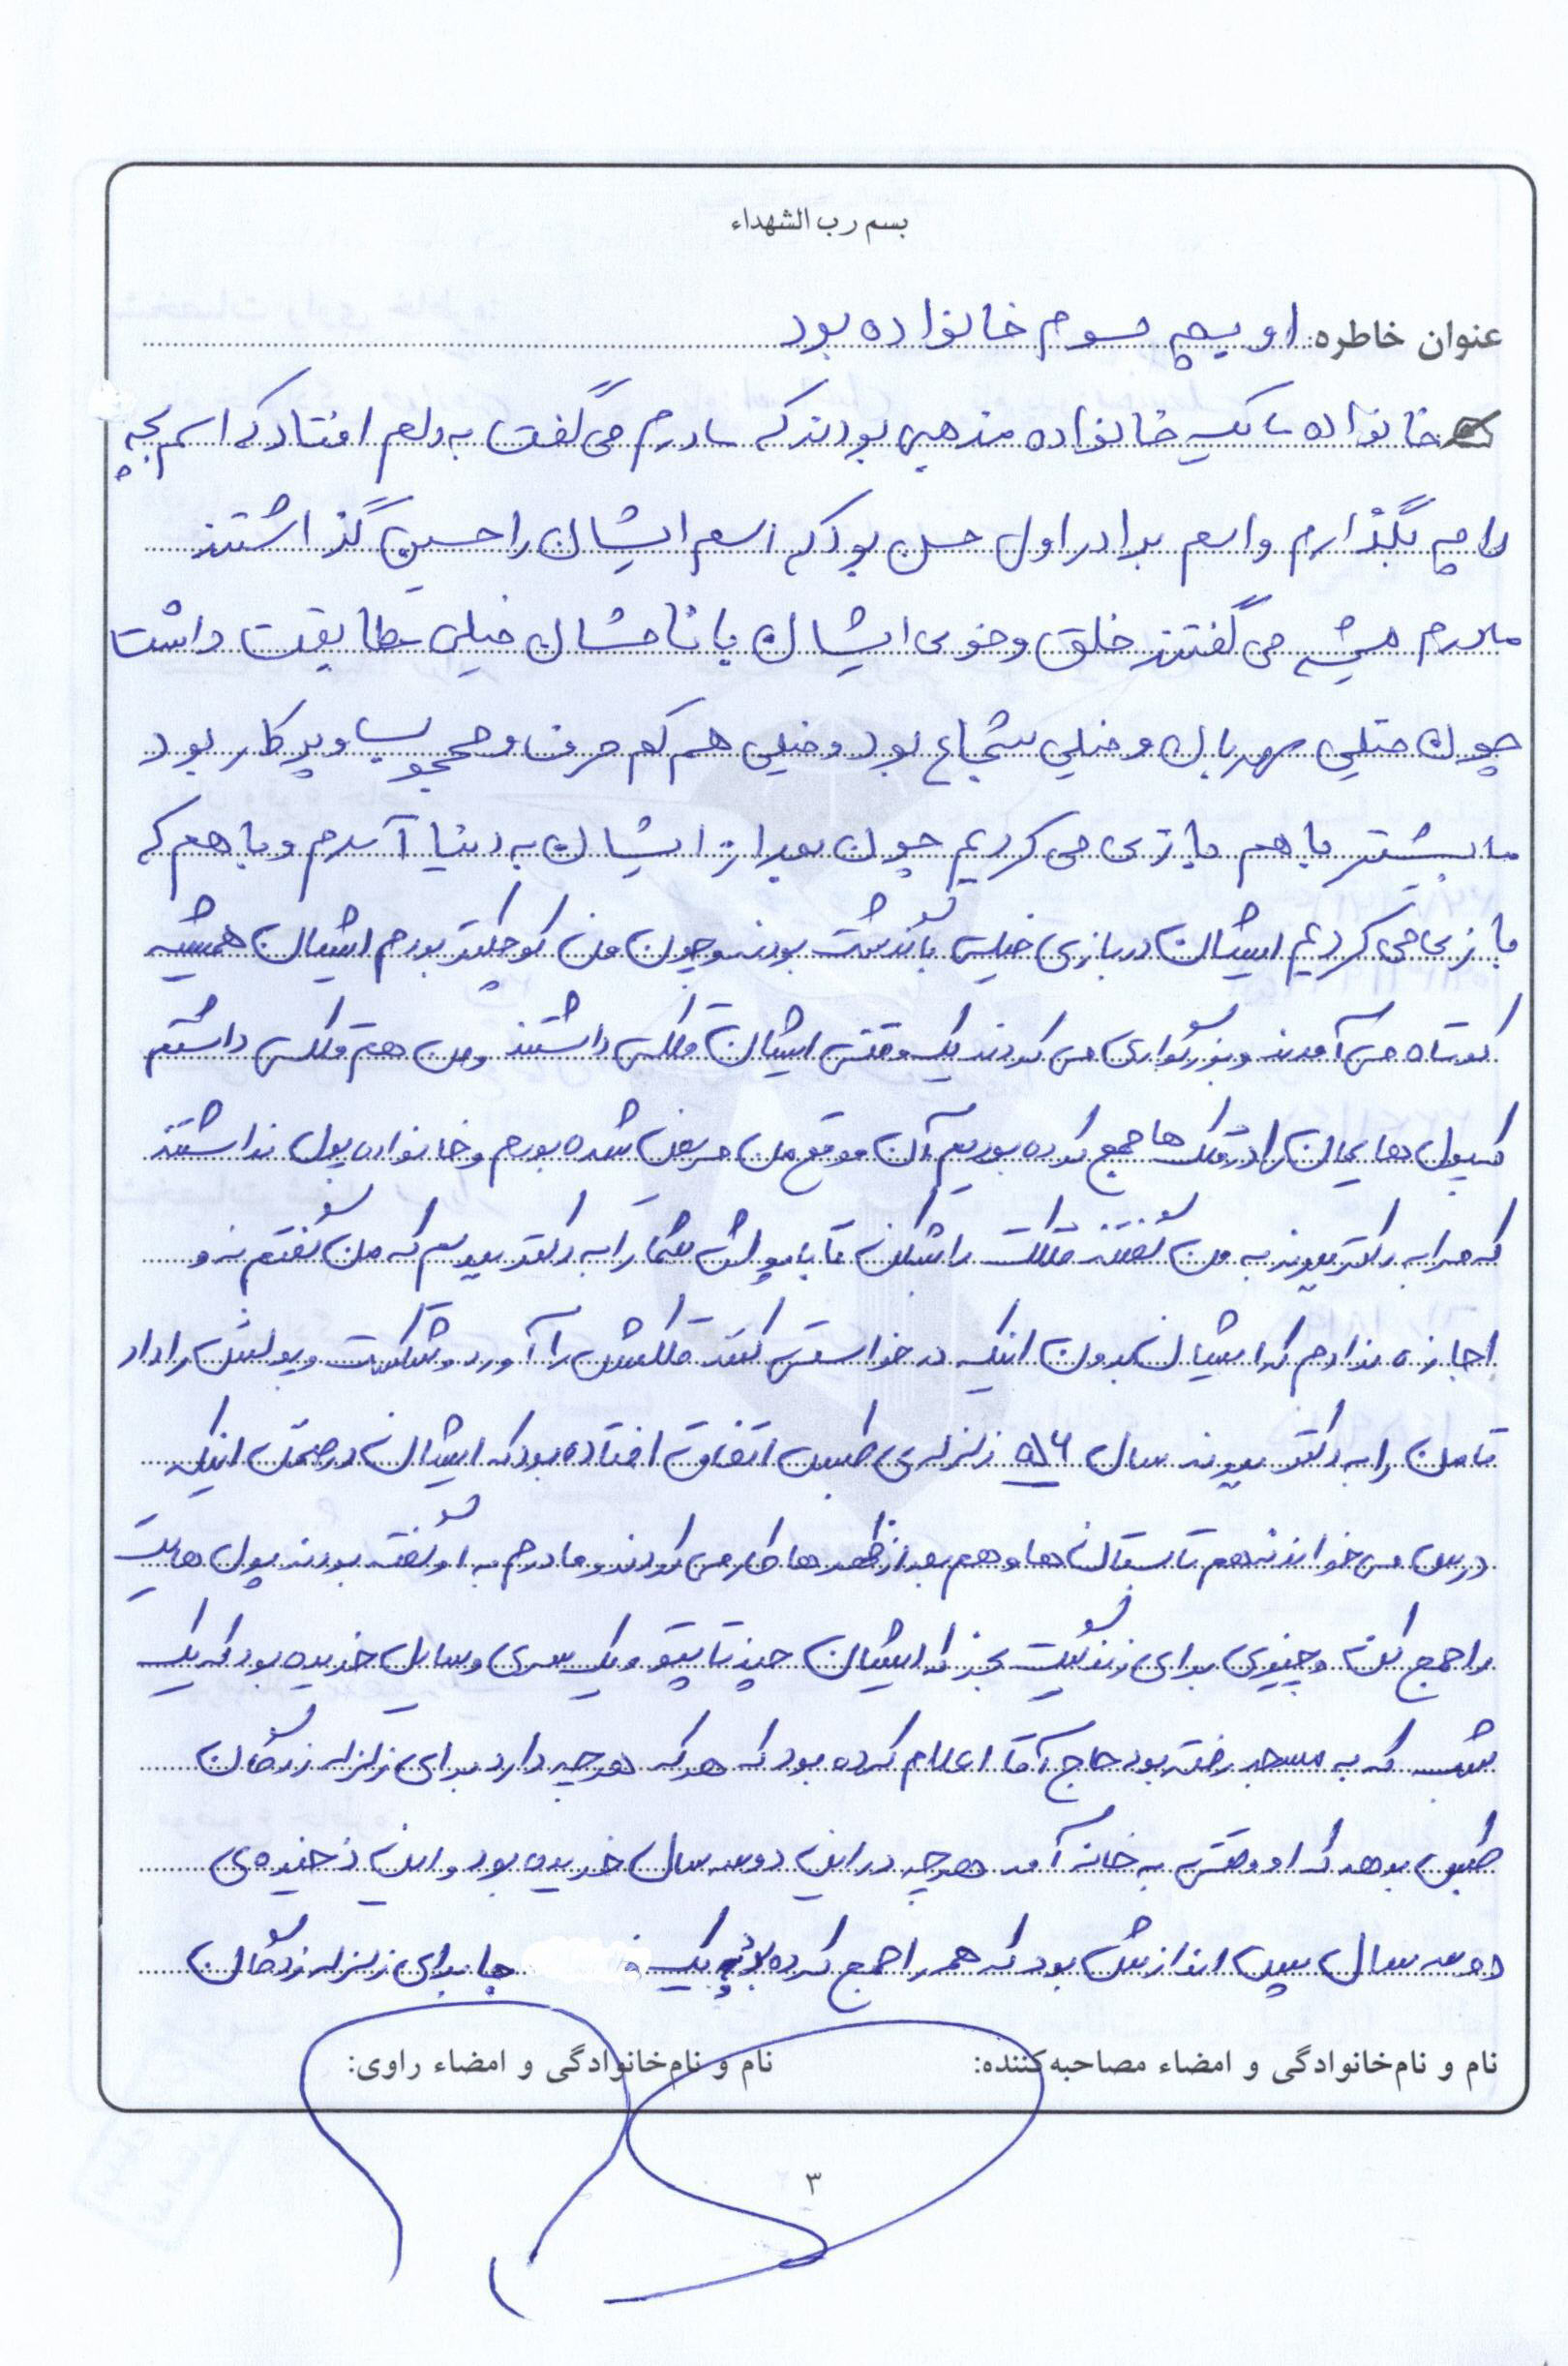 بسم رب الشهداء
عنوان خاطره: او بچه سوم خانواده بود
خانواده ما یک خانواده مذهبی بودند که مادرم می گفت به دلم افتاد که اسم بچه
را چه بگذارم و اسم برادر اول حسن بود که اسم ایشان را حسین گذاشتند
مادرم همیشه می گفتند خلق و خوی ایشان با نامشان خیلی مطابقت داشت
چون خیلی مهربان و خیلی شجاع بود و خیلی هم کم حرف و محجوب و پرکار بود
ما بیشتر با هم بازی می کردیم چون بعد از ایشان به دنیا آمدم و با هم که
بازی می کردیم ایشان در بازی خیلی با گذشت بودند و چون من کوچکتر بودم ایشان همیشه
کوتاه می آمدند و بزرگواری می کردند یک وقتی ایشان قلکی داشتند و من هم قلکی داشتم
که پول هایمان را در قلک ها جمع کرده بودیم آن موقع من مریض شده بودم و خانواده پول نداشتند
که مرا به دکتر ببرند به من گفتند قلکت را بشکن تا با پولش شما را به دکتر ببریم که من گفتم نه و
اجازه ندادم که ایشان بدون اینکه درخواستی کنند قلکش را آورد و شکست و پولش را داد
تا من را به دکتر ببرند سال ۵۶ زلزله ی طبس اتفاق افتاده بود که ایشان در ضمن اینکه
درس می خواندند هم تابستان ها و هم بعد از ظهر ها کار می کردند و مادرم به او گفته بودند پول هایت
را جمع کن و چیزی برای زندگیت بخر که ایشان چند تا پتو و یک سری وسایل خریده بود که یک
شب که به مسجد رفته بود حاج آقا اعلام کرده بود که هر که هر چه دارد برای زلزله زدگان
طبس بدهد که او وقتی به خانه آمد هر چه در این دو سه سال خریده بود و این ذخیره ی
دو سه سال پس اندازش بود که همه را جمع کرده بود یک جا برای زلزله زدگان
نام و نام‌خانوادگی و امضاء مصاحبه‌کننده: نام و نام‌خانوادگی و امضاء راوی:
۳